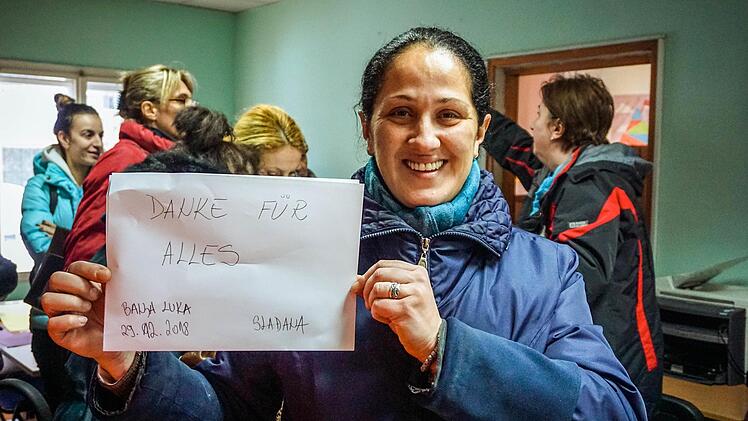 DANKE FÜR
ALLES
BANJA LUKA
29.12.2018
SLAĐANA